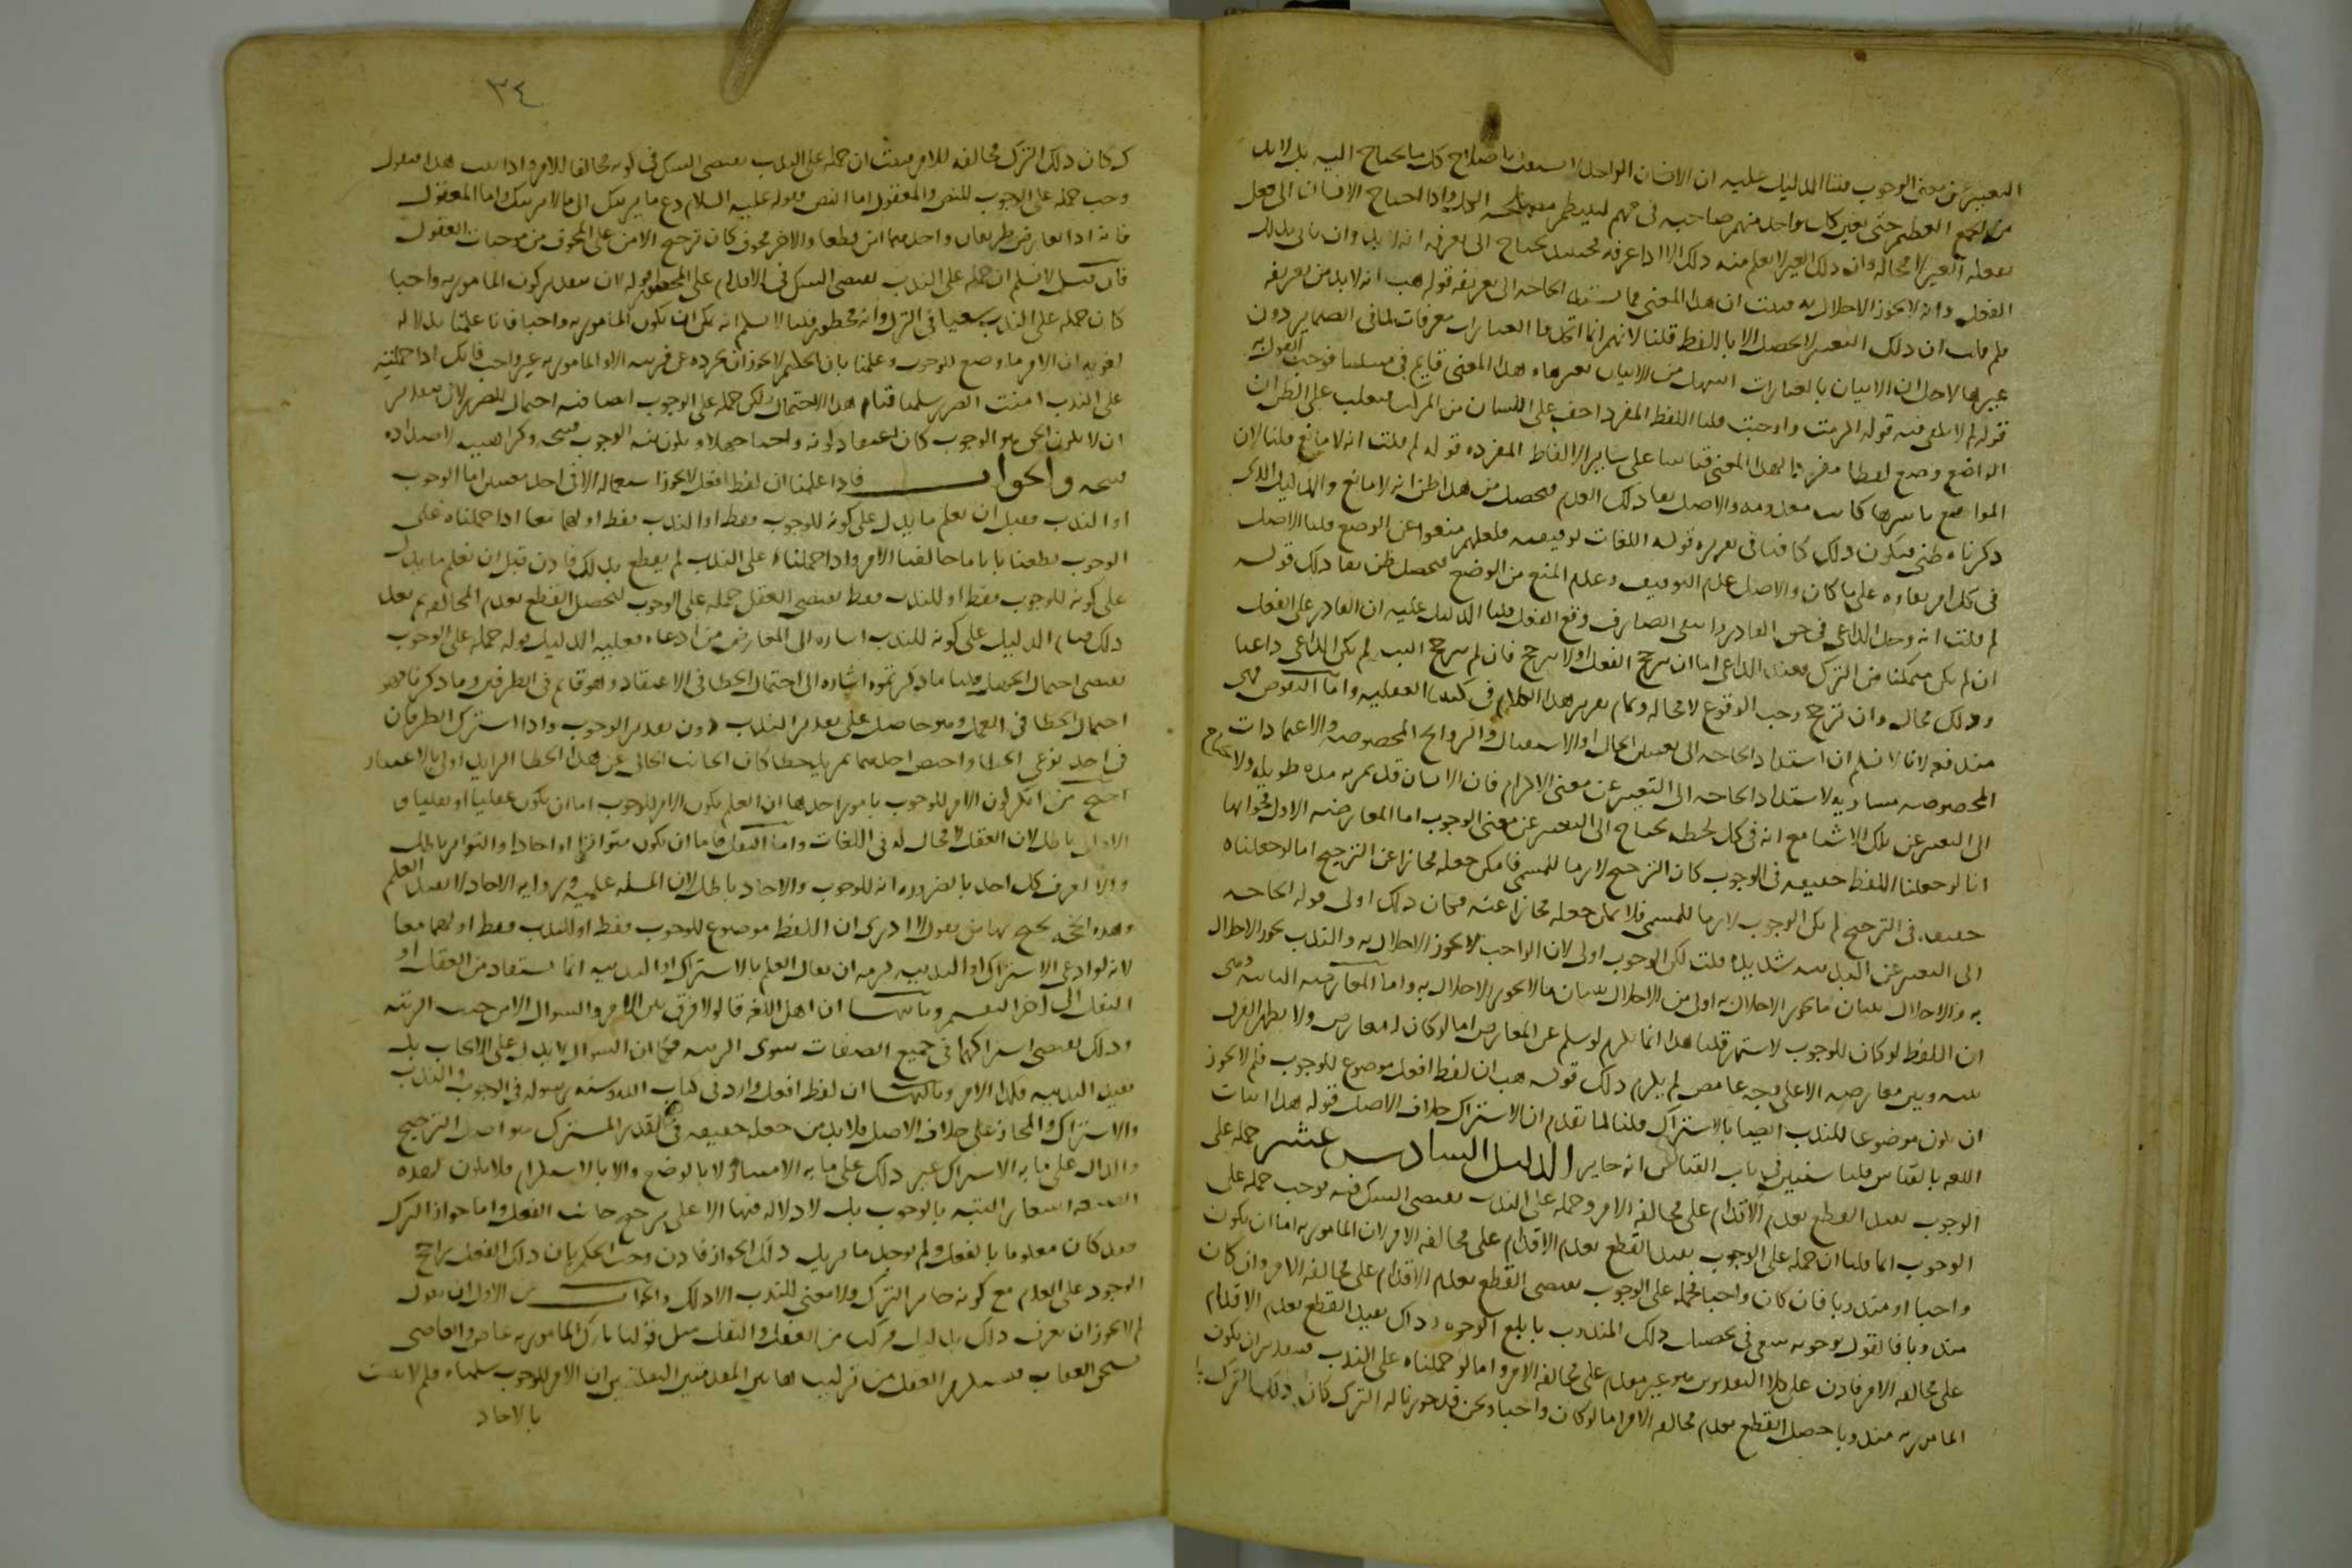 التعبير عن معنى الوجوب قلنا الدليل عليه ان الانسان الواحد لا يستقل باصلاح كل ما يحتاج اليه بل لا بد
من الجمع العظيم حتى يعين كل واحد منهم صاحبه في مهم لينتظم مصلحة الكل واذا احتاج الانسان الى فعل
يفعله الغير لا محالة وان ذلك الغير لا يعلم منه ذلك الا اذا عرفه فحينئذ يحتاج الى تعريفه انه لا بد وان ياتي بذلك
الفعل وانه لا يجوز الاخلال به فثبت ان هذا المعنى مما تشتد الحاجة الى تعريفه قوله هب انه لا بد من تعريفه
فلم قلت ان ذلك التعريف لا يحصل الا باللفظ قلنا لانهم انما اتخذوا العبارات معرفات لما في الضماير دون
غيرها لاجل ان الاتيان بالعبارات اسهل من الاتيان بغيرها وهذا المعنى قايم في مسئلتنا فوجب القول به
قوله لم لا يكفي فيه قوله الزمت واوجبت قلنا اللفظ المفرد اخف على اللسان من المركب فيغلب على الظن ان
الواضع وضع لفظا مفردا لهذا المعنى قياسا على ساير الالفاظ المفردة قوله لم قلت انه لا مانع قلنا لان
الموانع باسرها كانت معدومة والاصل بقا ذلك العدم فيحصل من هذا ظن انه لا مانع والدليل الذي
ذكرناه ظني فيكون ذلك كافيا في تقريره قوله اللغات توقيفية فلعلهم منعوا عن الوضع قلنا الاصل
في كل امر بقاوه على ما كان والاصل عدم التوقيف وعدم المنع من الوضع فيحصل ظن بقا ذلك قوله
لم قلت انه وجد الداعي في حق القادر وانتفى الصارف وقع الفعل قلنا الدليل عليه ان القادر على الفعل
ان لم يكن متمكنا من الترك فعند الداعي اما ان يترجح الفعل او لا يترجح فان لم يترجح البتة لم يكن الداعي داعيا
وذلك محال وان ترجح وجب الوقوع لا محالة وتمام تقرير هذا الكلام في كتبنا العقلية واما النقوض فهي
مندفعة لانا لا نسلم ان اشتداد الحاجة الى تعيين الحال او الاستقبال والروايح المخصوصة والاعتمادات
المخصوصة مساوية لاشتداد الحاجة الى التعبير عن معنى الالزام فان الانسان قد يمر به مدة طويلة ولا يحتاج
الى التعبير عن تلك الاشيا مع انه في كل لحظة يحتاج الى التعبير عن معنى الوجوب اما المعارضة الاولى فجوابها
انا لو جعلنا اللفظ حقيقة في الوجوب كان الترجيح لازما للمسمى فامكن جعله مجازا عن الترجيح اما لو جعلناه
حقيقة في الترجيح لم يكن الوجوب لازما للمسمى فلا يمكن جعله مجازا عنه فكان ذلك اولى قوله الحاجة
الى التعبير عن الندبية شديدة قلت لكن الوجوب اولى لان الواجب لا يجوز الاخلال به والندب يجوز الاخلال
به والاخلال ببيان ما يجوز الاخلال به اولى من الاخلال ببيان ما لا يجوز الاخلال به واما المعارضة الثانية وهي
ان اللفظ لو كان للوجوب لاشتهر قلنا هذا انما يلزم لو سلم عن المعارض اما لو كان له معارض ولا يظهر الفرق
بينه وبين معارضه الا على وجه غامض لم يلزم ذلك قوله هب ان لفظ افعل موضوع للوجوب فلم لا يجوز
ان يكون موضوعا للندب ايضا بالاشتراك قلنا لما تقدم ان الاشتراك خلاف الاصل قوله هذا اثبات
اللغة بالقياس قلنا سنبين في باب القياس انه جايز الدليل السادس عشر حمله على
الوجوب يفيد القطع بعدم الاقدام على مخالفة الامر وحمله على الندب يقتضي الشك فيه فوجب حمله على
الوجوب انما قلنا ان حمله على الوجوب يفيد القطع بعدم الاقدام على مخالفة الامر لان المامور به اما ان يكون
واجبا او مندوبا فان كان واجبا فحمله على الوجوب يقتضي القطع بعدم الاقدام على مخالفة الامر وان كان
مندوبا فالقول بوجوبه سعي في تحصيل ذلك المندوب بابلغ الوجوه وذاك يفيد القطع بعدم الاقدام
على مخالفة الامر فاذن على كلا التقديرين هو غير مقدم على مخالفة الامر واما لو حملناه على الندب فبتقدير ان يكون
المامور به مندوبا حصل القطع بعدم مخالفة الامر اما لو كان واجبا ونحن قد جوزنا له الترك كان ذلك الترك
٣٤
ك كان ذلك الترك مخالفة للامر فثبت ان حمله على الندب يقتضي الشك في كونه مخالفا للامر واذا ثبت هذا فنقول
وجب حمله على الوجوب للنص والمعقول اما النص فقوله عليه السلام دع ما يريبك الى ما لا يريبك واما المعقول
فانه اذا تعارض طريقان واحدهما امن قطعا والاخر مخوف كان ترجيح الامن على المخوف من موجبات العقول
فان قيل لا نسلم ان حمله على الندب يقتضي الشك في الاقدام على المحظور قوله لان بتقدير كون المامور به واجبا
كان حمله على الندب سعيا في الترك وانه محظور قلنا لا نسلم انه يمكن ان يكون المامور به واجبا فانا علمنا بدلالة
لغوية ان الامر ما وضع للوجوب وعلمنا بان الحكيم لا يجوز ان يجرده عن قرينة الا والمامور به غير واجب فانك اذا حملته
على الندب امنت الضرر سلمنا قيام هذا الاحتمال ولكن حمله على الوجوب ايضا فيه احتمال للضرر لان بتقدير
ان لا يكون الحق هو الوجوب كان اعتقاد كونه واجبا جهلا ويكون نية الوجوب قبيحة وكراهية اضداده
قبيحة والجواب فاذا علمنا ان لفظ افعل لا يجوز استعماله الا في احد معنيين اما الوجوب
او الندب فقبل ان نعلم ما يدل على كونه للوجوب فقط او الندب فقط او لهما معا اذا حملناه على
الوجوب قطعنا بانا ما خالفنا الامر واذا حملناه على الندب لم نقطع بذلك فاذن قبل ان نعلم ما يدل
على كونه للوجوب فقط او للندب فقط يقتضي العقل حمله على الوجوب ليحصل القطع بعدم المخالفة ثم بعد
ذلك قيام الدليل على كونه للندب اشارة الى المعارض من ادعاه فعليه الدليل قوله حمله على الوجوب
يقتضي احتمال الجهل قلنا ما ذكرتموه اشارة الى احتمال الخطا في الاعتقاد وهو قايم في الطرفين وما ذكرناه هو
احتمال الخطا في العمل وهو حاصل على تقدير الندب دون تقدير الوجوب واذا اشترك الطرفان
في احد نوعي الخطا واختص احدهما بمزيد خطا كان الجانب الخالي عن هذا الخطا الزايد اولى بالاعتبار
احتج من انكر كون الامر للوجوب بامور احدها ان العلم بكون الامر للوجوب اما ان يكون عقليا او نقليا و
الاول باطل لان العقل لا مجال له في اللغات واما النقل فاما ان يكون متواترا او احادا والتواتر باطل
والا لعرف كل احد بالضرورة انه للوجوب والاحاد باطل لان المسئلة علمية ورواية الاحاد لا تفيد العلم
وهذه الحجة يحتج بها من يقول لا ادري ان اللفظ موضوع للوجوب فقط او للندب فقط او لهما معا
لانه لو ادعى الاشتراك او الندبية لزمه ان يقال العلم بالاشتراك او الندبية انما يستفاد من العقل او
النقل الى اخر التقسيم وثانيها ان اهل اللغة قالوا لا فرق بين الامر والسوال الا من حيث الرتبة
وذلك يقتضي اشتراكهما في جميع الصفات سوى الرتبة فكما ان السوال لا يدل على الايجاب بل
يفيد الندبية فكذا الامر وثالثها ان لفظ افعل وارد في كتاب الله وسنة رسوله في الوجوب والندب
والاشتراك والمجاز على خلاف الاصل فلا بد من جعله حقيقة في القدر المشترك هو اصل الترجيح
والدال على ما به الاشتراك غير دال على ما به الامتياز لا بالوضع ولا بالاستلزام فلا يكون لهذه
الصيغة اشعار البتة بالوجوب بل لا دلالة فيها الا على ترجيح جانب الفعل واما جواز الترك
فقد كان معلوما بالعقل ولم يوجد ما يزيل ذلك الجواز فاذن وجب الحكم بان ذلك الفعل راجح
الوجود على العدم مع كونه جايز الترك ولا معنى للندب الا ذلك والجواب عن الاول ان نقول
لم لا يجوز ان نعرف ذلك بدليل مركب من العقل والنقل مثل قولنا تارك المامور به عاص والعاصي
يستحق العقاب فيستلزم العقل من تركيب هاتين المقدمتين النقليتين ان الامر للوجوب سلمناه فلم لا يثبت
بالاحاد